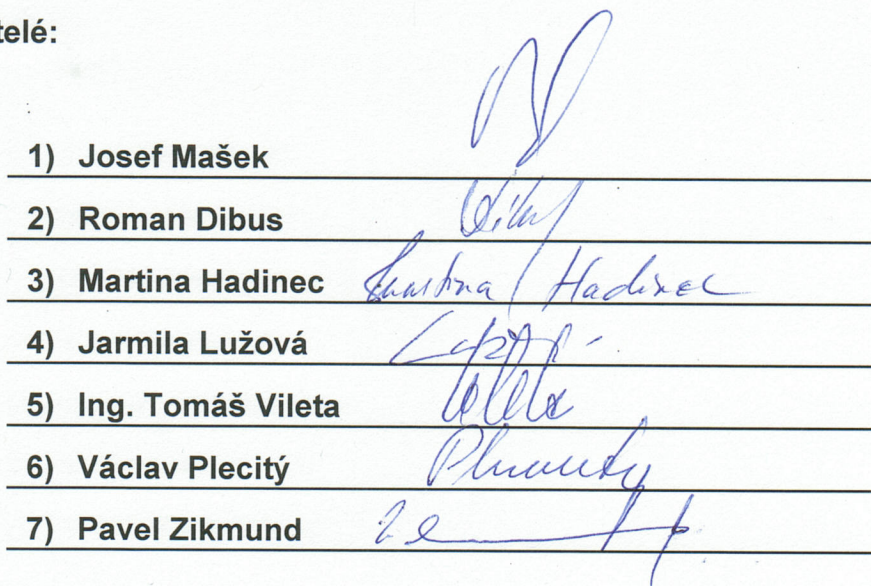 telé:
1) Josef Mašek
2) Roman Dibus
3) Martina Hadinec Martina Hadinec
4) Jarmila Lužová
5) Ing. Tomáš Vileta Vileta
6) Václav Plecitý
7) Pavel Zikmund